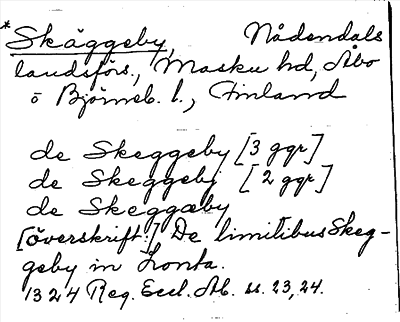 * Skäggeby, Nådendals
landsförs., Masku hd, Åbo
o Björneb. l., Finland
de Skeggeby [3 ggr]
de Skeggebj [2 ggr]
de Skeggæby
[överskrift:] De limitibus Skeg-
geby in Lonta.
1324 Reg. Eccl. Ab. s. 23, 24.